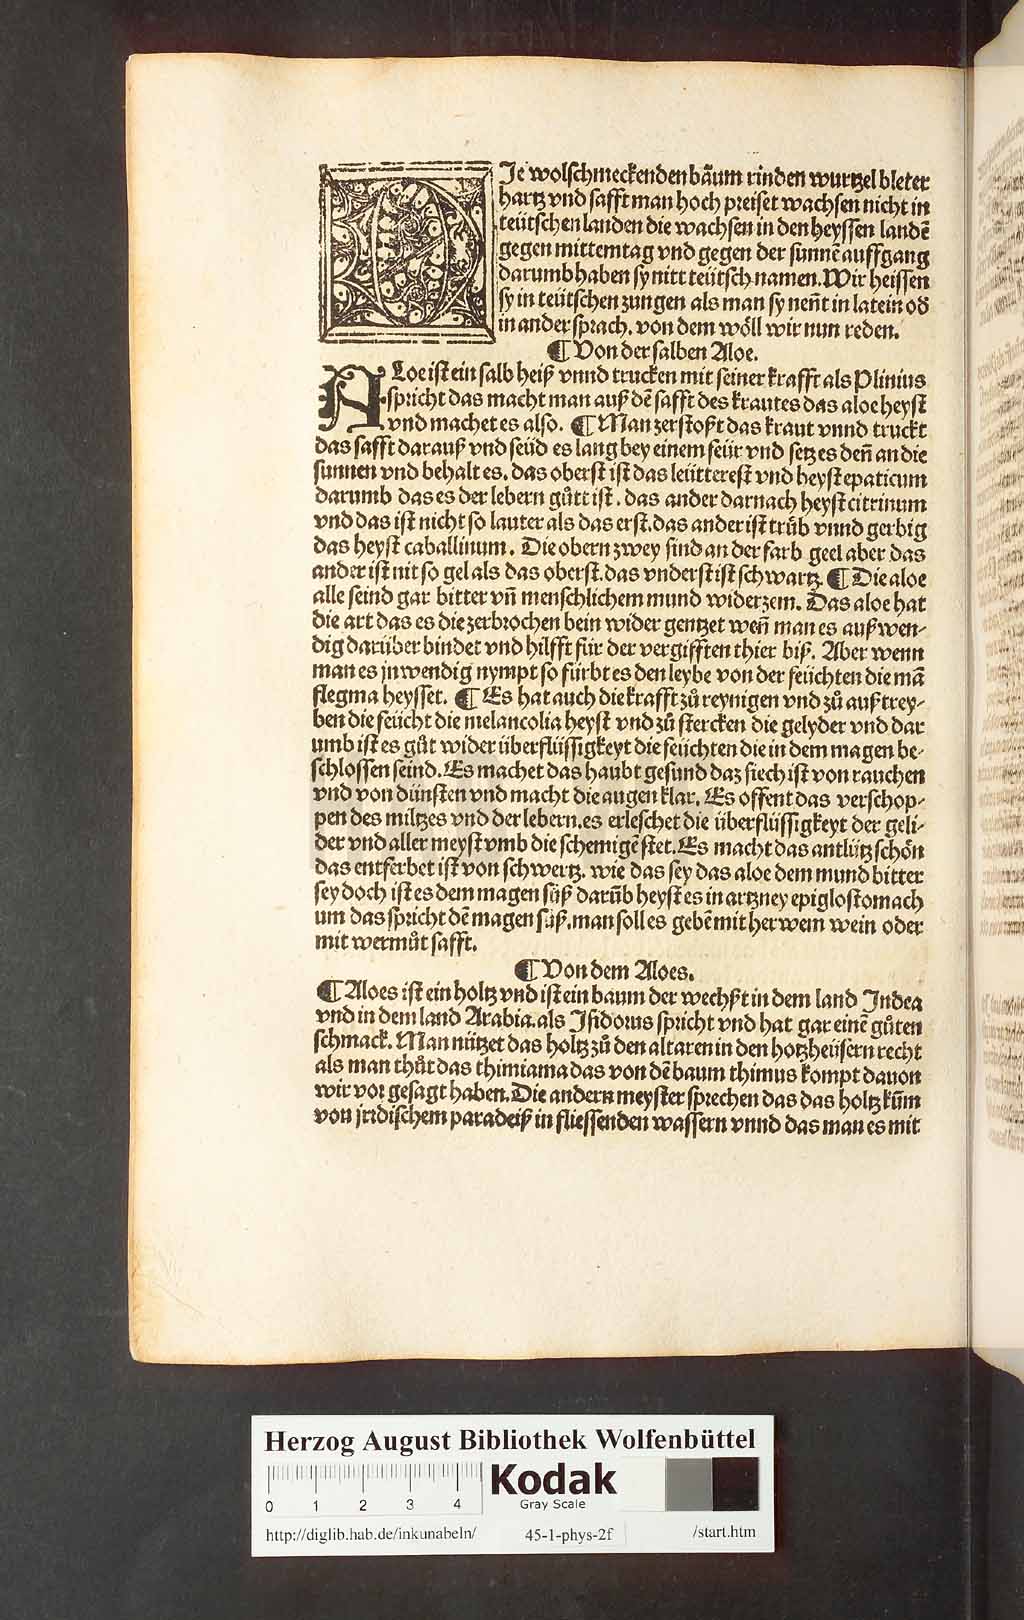 DJe wolschmeckenden bãum rinden wurtzel bleter
hartz vnd safft man hoch preiset wachsen nicht in
teütschen landen die wachsen in den heyssen landẽ
gegen mittemtag vnd gegen der sunnẽ auffgang
darumb haben sy nitt teütsch namen. Wir heissen
sy in teütschen zungen als man sy nen̄t in latein od
in ander sprach. von dem wöll wir nun reden.
¶ Von der salben Aloe.
ALoe ist ein salb heiß vnnd trucken mit seiner krafft als Plinius
spricht das macht man auß dẽ safft des krautes das aloe heyst
vnd machet es also. ¶ Man zerstoßt das kraut vnnd truckt
das safft darauß vnd seüd es lang bey einem feür vnd setz es den̄ an die
sunnen vnd behalt es. das oberst ist das leütterest vnd heyst epaticum
darumb das es der lebern gůtt ist. das ander darnach heyst citrinum
vnd das ist nicht so lauter als das erst. das ander ist trüb vnnd gerbig
das heyst caballinum. Die obern zwey sind an der farb geel aber das
ander ist nit so gel als das oberst. das vnderst ist schwartz. ¶ Die aloe
alle seind gar bitter vn̄ menschlichem mund widerzem. Das aloe hat
die art das es die zerbrochen bein wider gentzet wen̄ man es außwen-
dig darüber bindet vnd hilfft für der vergifften thier biß. Aber wenn
man es jnwendig nympt so fürbt es den leybe von der feüchten die mã
flegma heysset. ¶ Es hat auch die krafft zů reynigen vnd zů außtrey-
ben die feücht die melancolia heyst vnd zů stercken die gelyder vnd dar
umb ist es gůt wider überflüssigkeyt die feüchten die in dem magen be-
schlossen seind. Es machet das haubt gesund daz siech ist von rauchen
vnd von dünsten vnd macht die augen klar. Es offent das verschop-
pen des miltzes vnd der lebern. es erleschet die überflüssigkeyt der geli-
der vnd aller meyst vmb die schemigẽ stet. Es macht das antlütz schön
das entferbet ist von schwertz. wie das sey das aloe dem mund bitter
sey doch ist es dem magen süß darũb heyst es in artzney epiglostomach
um das spricht dẽ magen süß. man soll es gebẽ mit her wem wein oder
mit wermůt safft.
¶ Von dem Aloes.
¶ Aloes ist ein holtz vnd ist ein baum der wechßt in dem land Jndea
vnd in dem land Arabia. als Jsidorus spricht vnd hat gar einẽ gůten
schmack. Man nützet das holtz zů den altaren in den hotzheüsern recht
als man thůt das thimiama das von dẽ baum thimus kompt dauon
wir vor gesagt haben. Die andern meyster sprechen das das holtz kũm
von jrdischem paradeiß in fliessenden wassern vnnd das man es mit
Herzog August Bibliothek Wolfenbüttel
0 1 2 3 4
Kodak
Gray Scale
http://diglib.hab.de/inkunabeln/ 45-1-phys-2f /start.htm